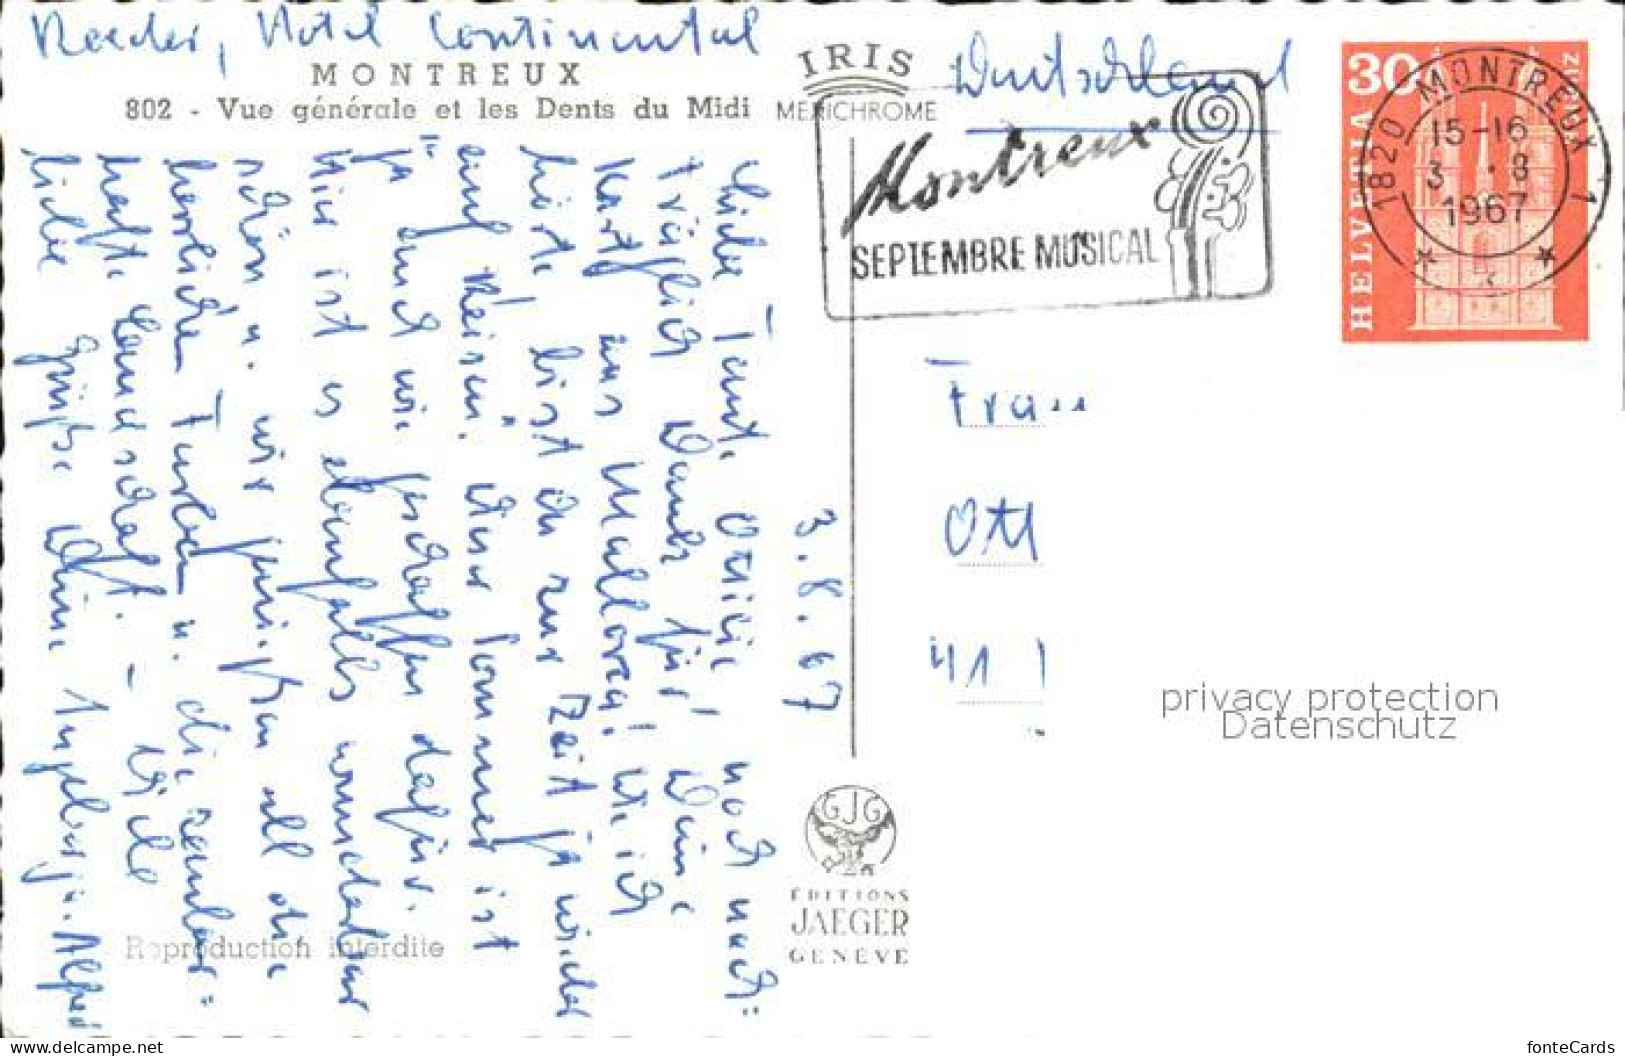 Roeder, Hotel Continental
MONTREUX
802 - Vue générale et les Dents du Midi
IRIS
MEXICHROME
Deutschland
Montreux
SEPTEMBRE MUSICAL
30
HELVETIA
1820 MONTREUX 1
15-16
3.8
1967
3.8.67
Liebe Tante Ottilie, noch nach=
träglich Dank für Deine
Karte aus Mallorca! Wie ich
hörte bist Du zur Zeit ja wieder
auf Reisen. Der Sommer ist
ja auch wie geschaffen dafür.
Hier ist es ebenfalls wunderbar
schön u. wir genießen all die
herrlichen Farben u. die zauber=
hafte Landschaft. – Viele
liebe Grüße Deine Ingeborg u. Alfred
Frau
Ott
41
privacy protection
Datenschutz
GJG
ÉDITIONS
JAEGER
GENÈVE
Reproduction interdite
www.delcampe.net
fonteCards